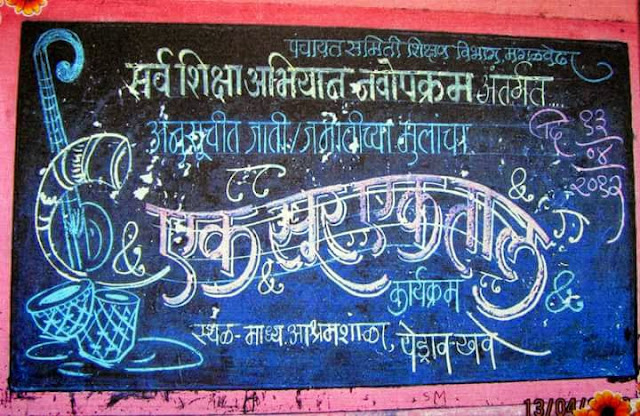 पंचायत समिती शिक्षण विभाग, मंगळवेढा
सर्व शिक्षा अभियान नवोपक्रम अंतर्गत....
अनुसूचीत जाती/जमातीच्या मुलांचा
दि १३
०४
२०१३
एक सुर एक ताल
कार्यक्रम
स्थळ- माध्य. आश्रमशाळा, येड्राव-खवे
SM
13/04/